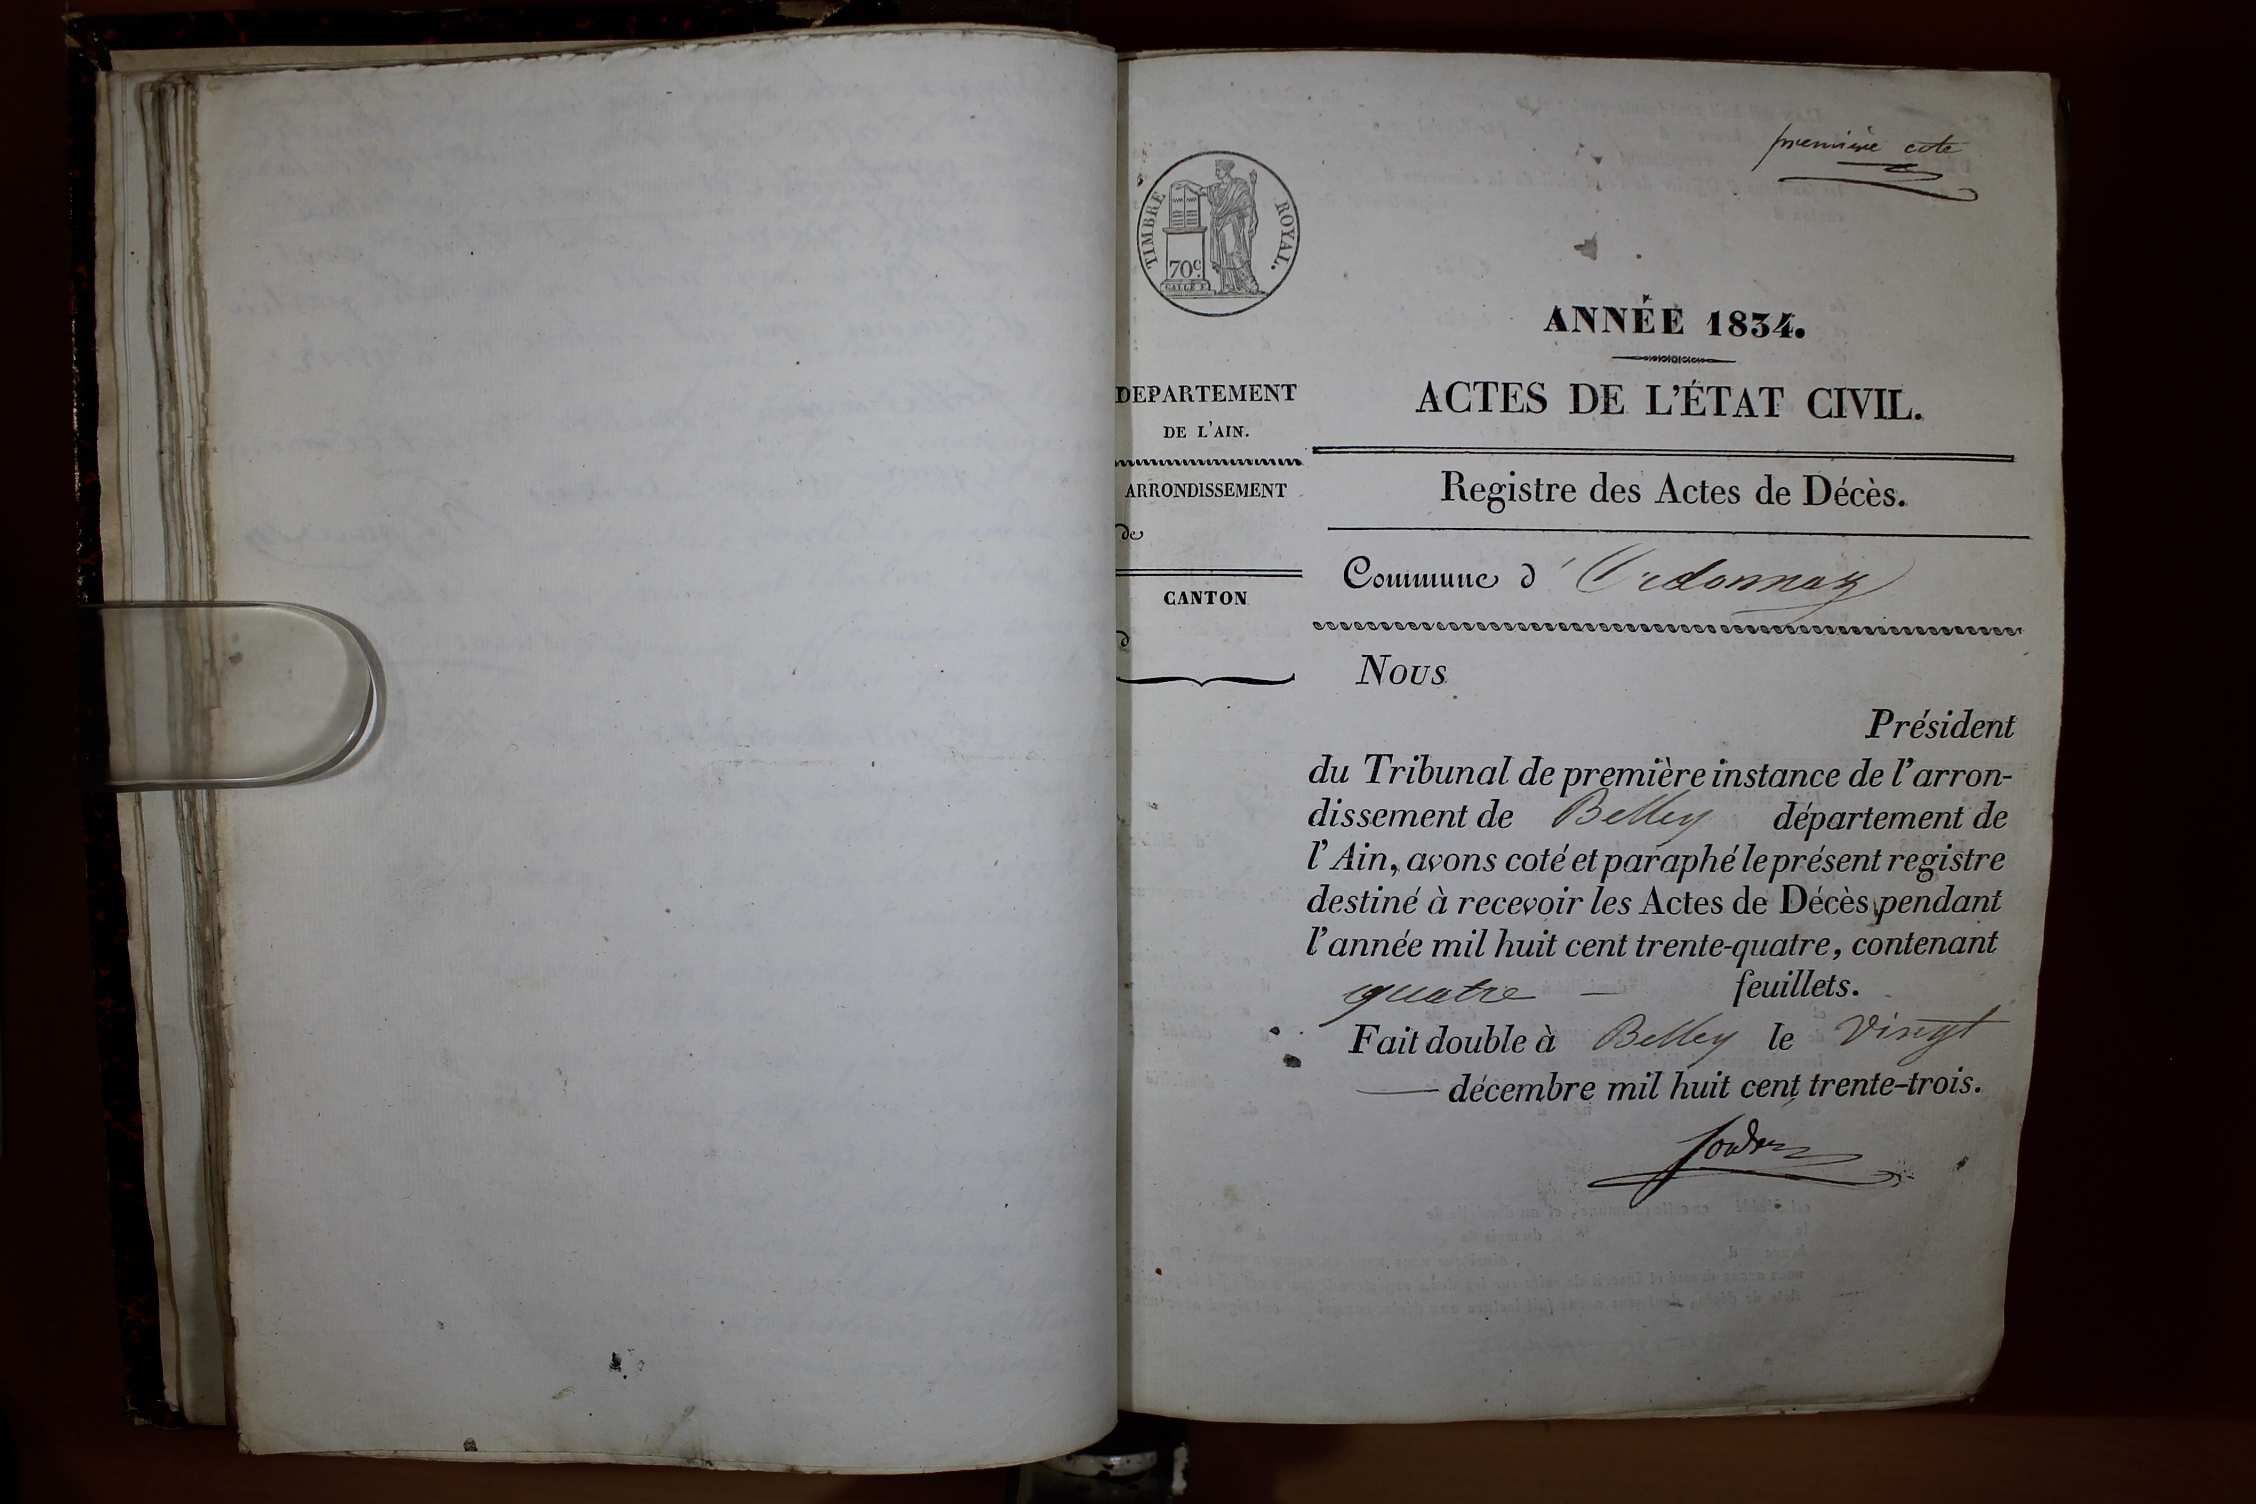 première cote
TIMBRE ROYAL.
70c.
ANNÉE 1834.
DEPARTEMENT
DE L'AIN.
ARRONDISSEMENT
de
CANTON
d
ACTES DE L'ÉTAT CIVIL.
Registre des Actes de Décès.
Commune d' Ordonnaz
Nous
Président
du Tribunal de première instance de l'arron-
dissement de Belley département de
l'Ain, avons coté et paraphé le présent registre
destiné à recevoir les Actes de Décès pendant
l'année mil huit cent trente-quatre, contenant
quatre — feuillets.
Fait double à Belley le vingt
— décembre mil huit cent trente-trois.